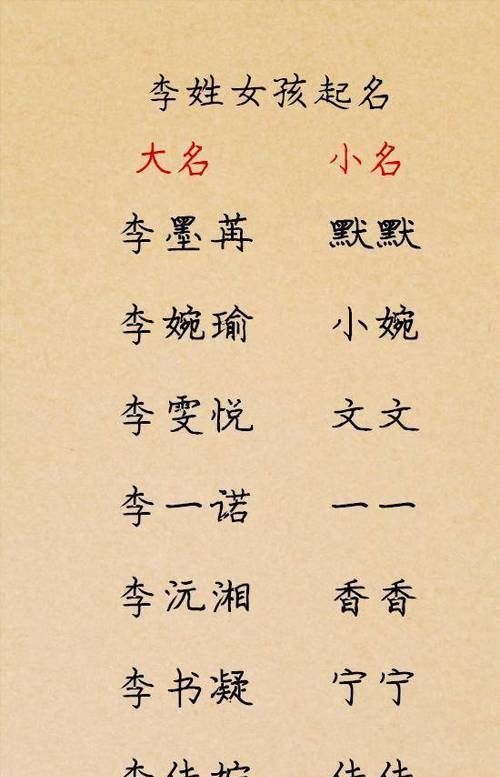 李姓女孩起名
大名 小名
李墨苒 默默
李婉瑜 小婉
李雯悦 文文
李一诺 一一
李沅湘 香香
李书凝 宁宁